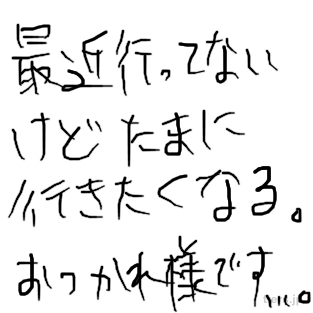 最近行ってない
けどたまに
行きたくなる。
おつかれ様です…。